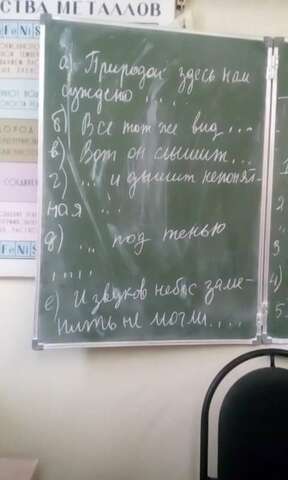 СТВА МЕТАЛЛОВ
Fe Ni S
а) Природой здесь нам
суждено .....
б) Все тот же вид ...
в) Вот он слышит...
г) ... и дышит непонят-
ная ...
д) ... под тенью
.....
е) И звуков небес заме-
нить не могли....
Fe Ni S
1
2
3
4)
5.